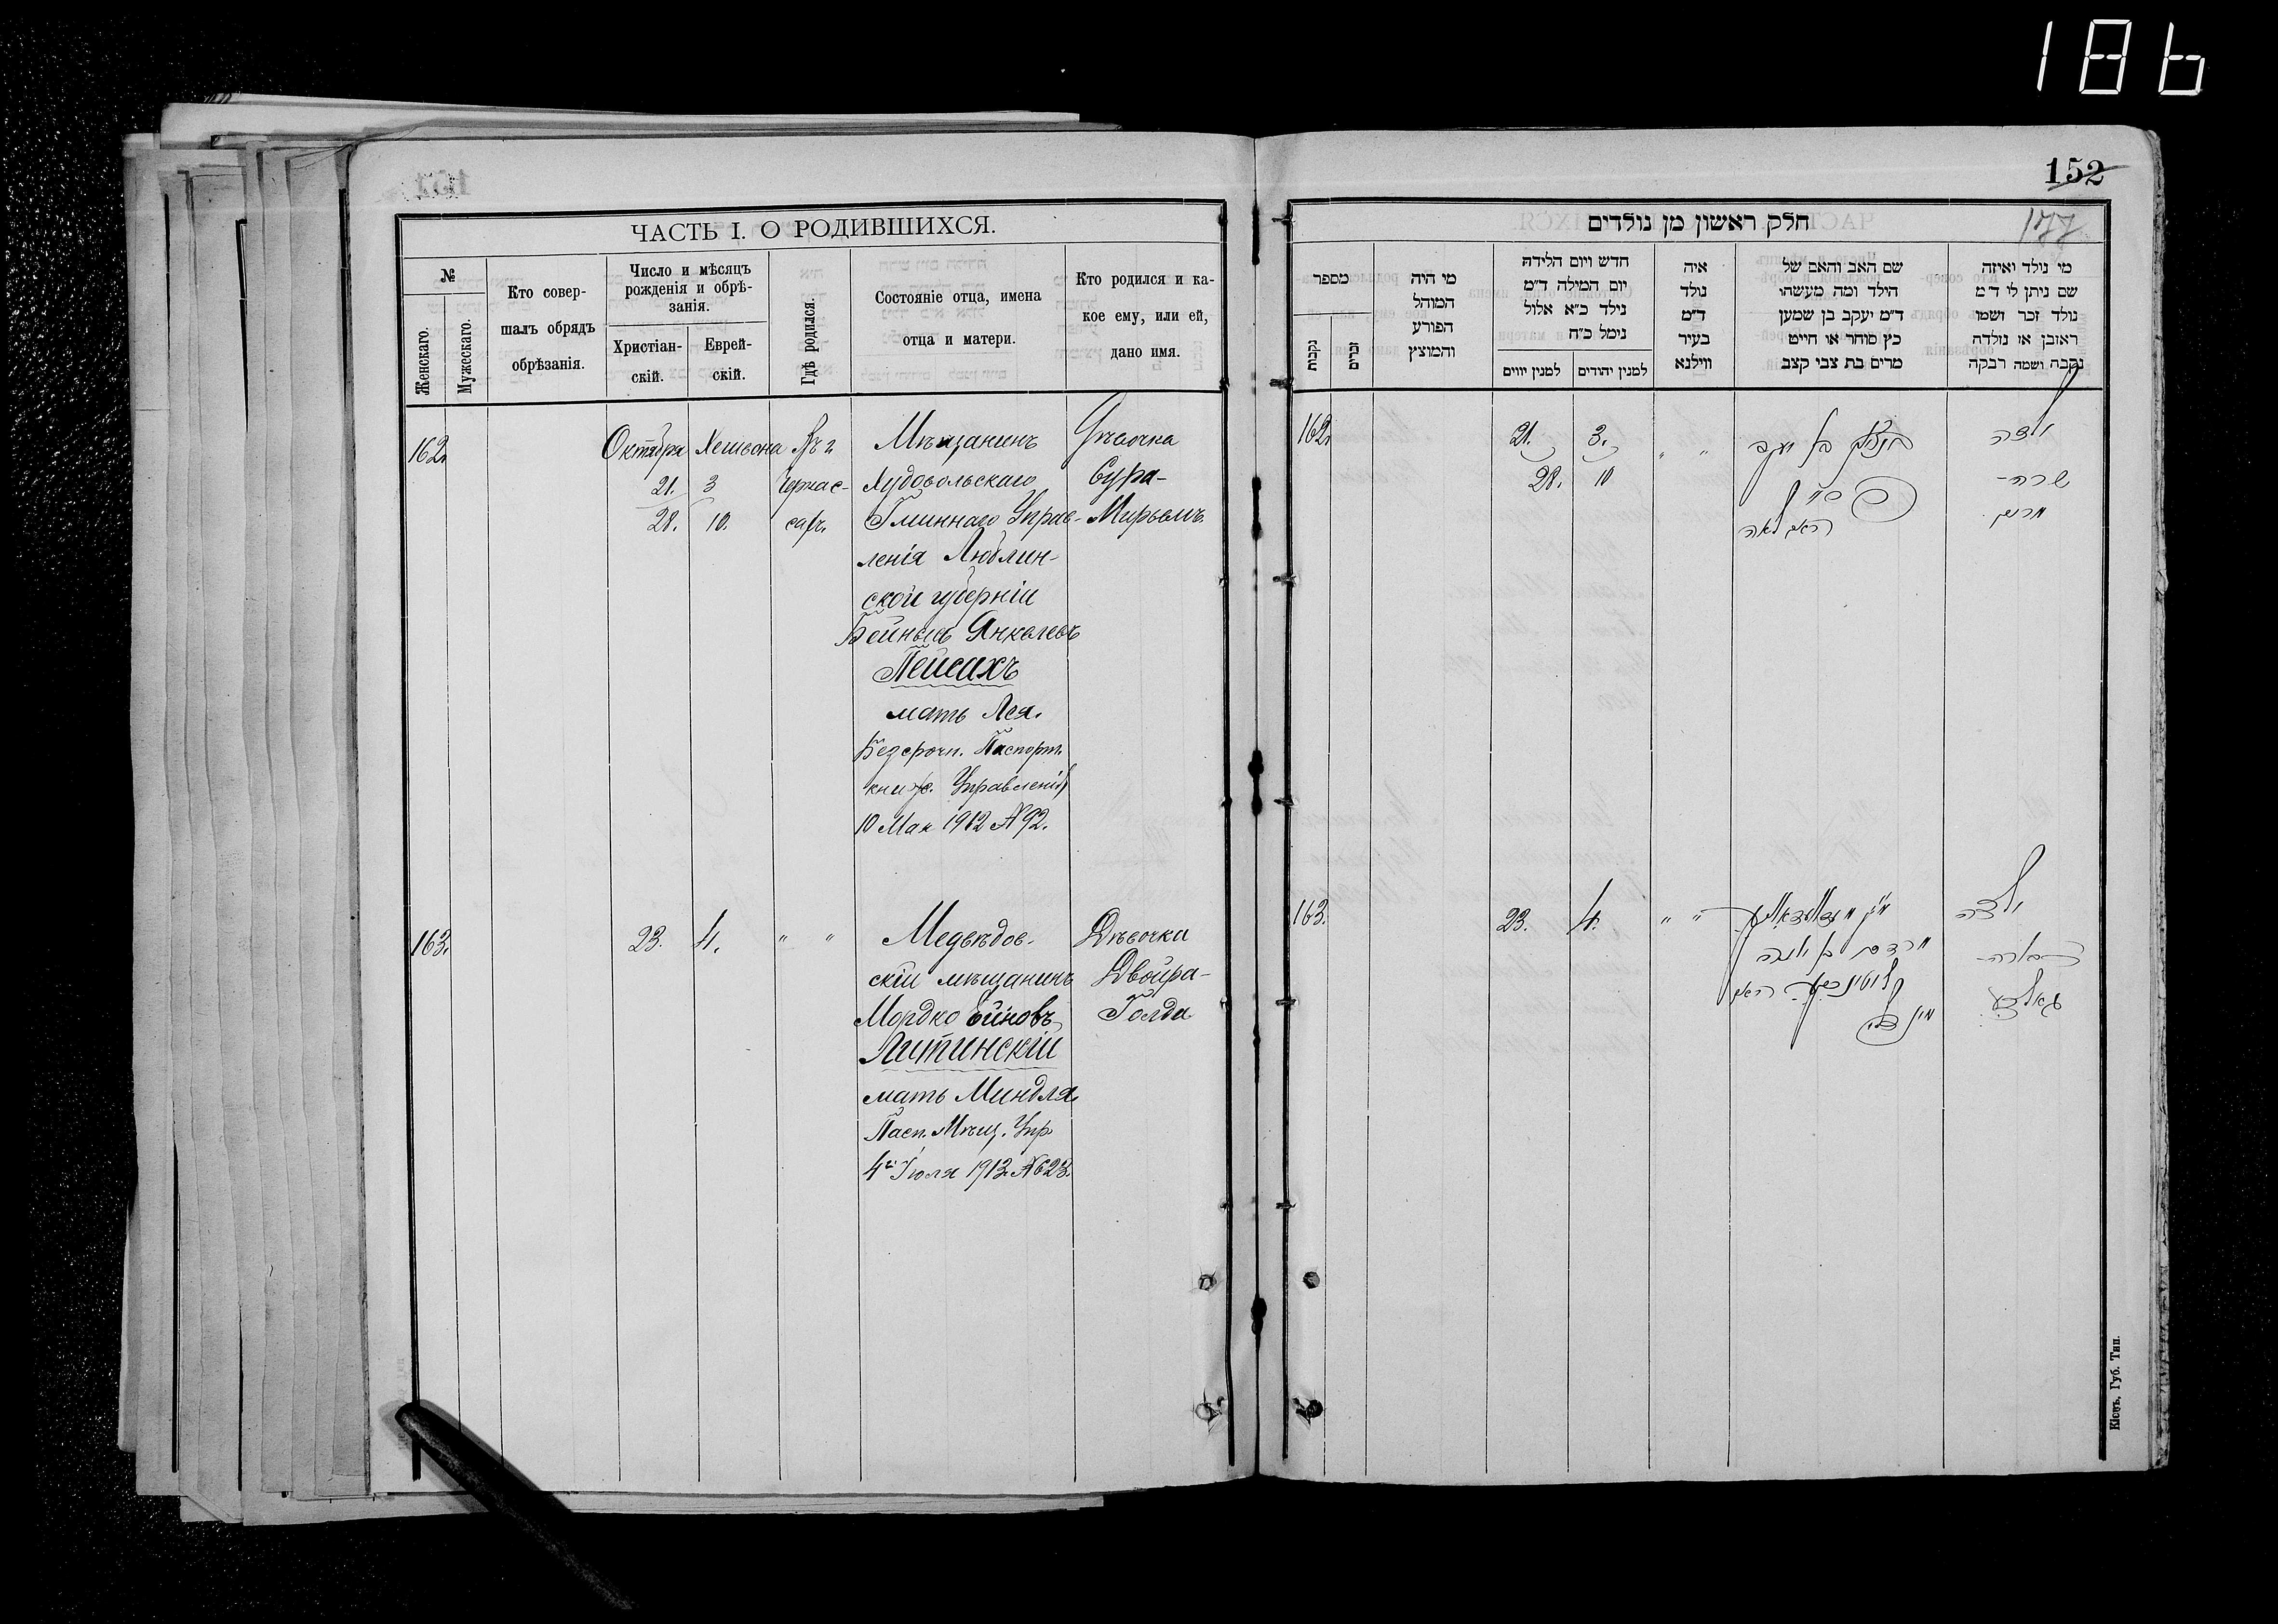 186
152
177
ЧАСТЬ I. О РОДИВШИХСЯ.
№
Женскаго.
Мужескаго.
Кто совер-
шалъ обрядъ
обрѣзанія.
Число и мѣсяцъ
рожденія и обрѣ-
занія.
Христіан-
скій.
Еврей-
скій.
Гдѣ родился.
Состояніе отца, имена
отца и матери.
Кто родился и ка-
кое ему, или ей,
дано имя.
162.
Октября
21.
28.
Хешвона
3
10.
Въ г.
Черкас-
сахъ.
Мѣщанинъ
Худовольскаго
Гминнаго Управ-
ленія Люблин-
ской губерніи
Бейнышъ Янкелевъ
Пейсахъ
мать Лея.
Безсрочн. Паспорт.
книж. Управленія
10 Мая 1912 № 92.
Дѣвочка
Сура-
Мирьемъ.
163.
23.
4.
" "
Медвѣдов-
скій мѣщанинъ
Мордко
Литинскій
мать Миндля.
Пасп. Мѣщ. Упр.
4го Іюля 1913 № 623.
Дѣвочка
Двойра-
Голда
חלק ראשון מן נולדים
מספר
נקבות
זכרים
מי היה
המוהל
הפורע
והמוצץ
חדש ויום הלידה
יום המילה ד״מ
נילד כ״א אלול
נימל כ״ח
למנין יווים
למנין יהודים
איה
נולד
ד״מ
בעיר
ווילנא
שם האב והאם של
הילד ומה מעשהו
ד״מ יעקב בן שמען
כץ סוחר או חייט
מרים בת צבי קצב
מי נולד ואיזה
שם ניתן לו ד״מ
נולד זכר ושמו
ראובן או נולדה
נקבה ושמה רבקה
162.
21.
28.
3.
10
" "
בן יעקב
פסח
האם לאה
ילדה
שרה-
מרים
163.
23.
4.
" "
מרדכי בן
האם
מינדלי
ילדה
דבורה-
גאלדע
Кіевъ, Губ. Тип.